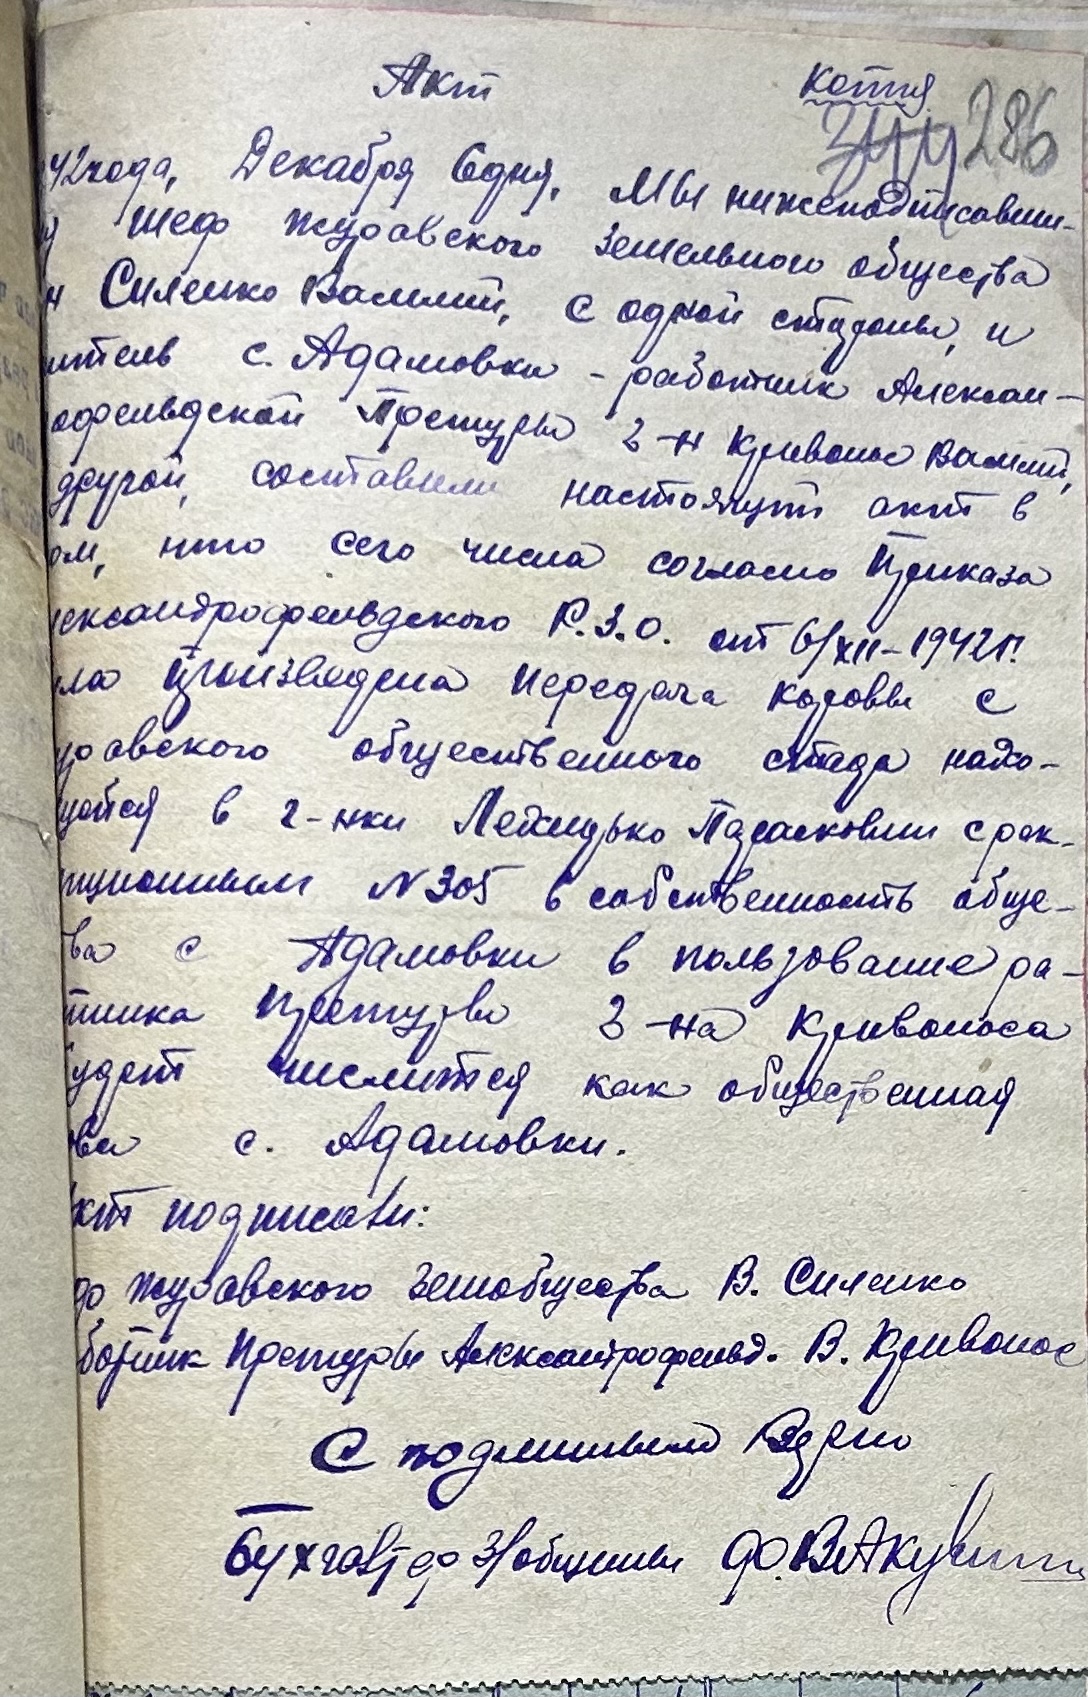 Акт Копия
286
942 года, Декабря 6 дня. Мы нижеподписавши-
шеф Журавского Земельного общества
н Силенко Василий, с одной стороны, и
итель с. Адамовки - работник Алексан-
офельдской Претуры г-н Кривонос Василий,
другой, составили настоящий акт в
ом, что сего числа согласно Приказа
лександрофельдского Р.З.О. от 6/XII-1942 г.
ла произведена передача коровы с
уравского общественного стада нахо-
щейся в г-нки Лехидько Парасковии с рек-
иционным №305 в собственность обще-
ва с Адамовки в пользование ра-
тника Претуры г-на Кривоноса
удет числится как общественная
ова с. Адамовки.
кт подписали:
Журавского Земобщества В. Силенко
ботник Претуры Александрофельд. В. Кривонос
С подлинным Верно
Бухгалтер З/общины